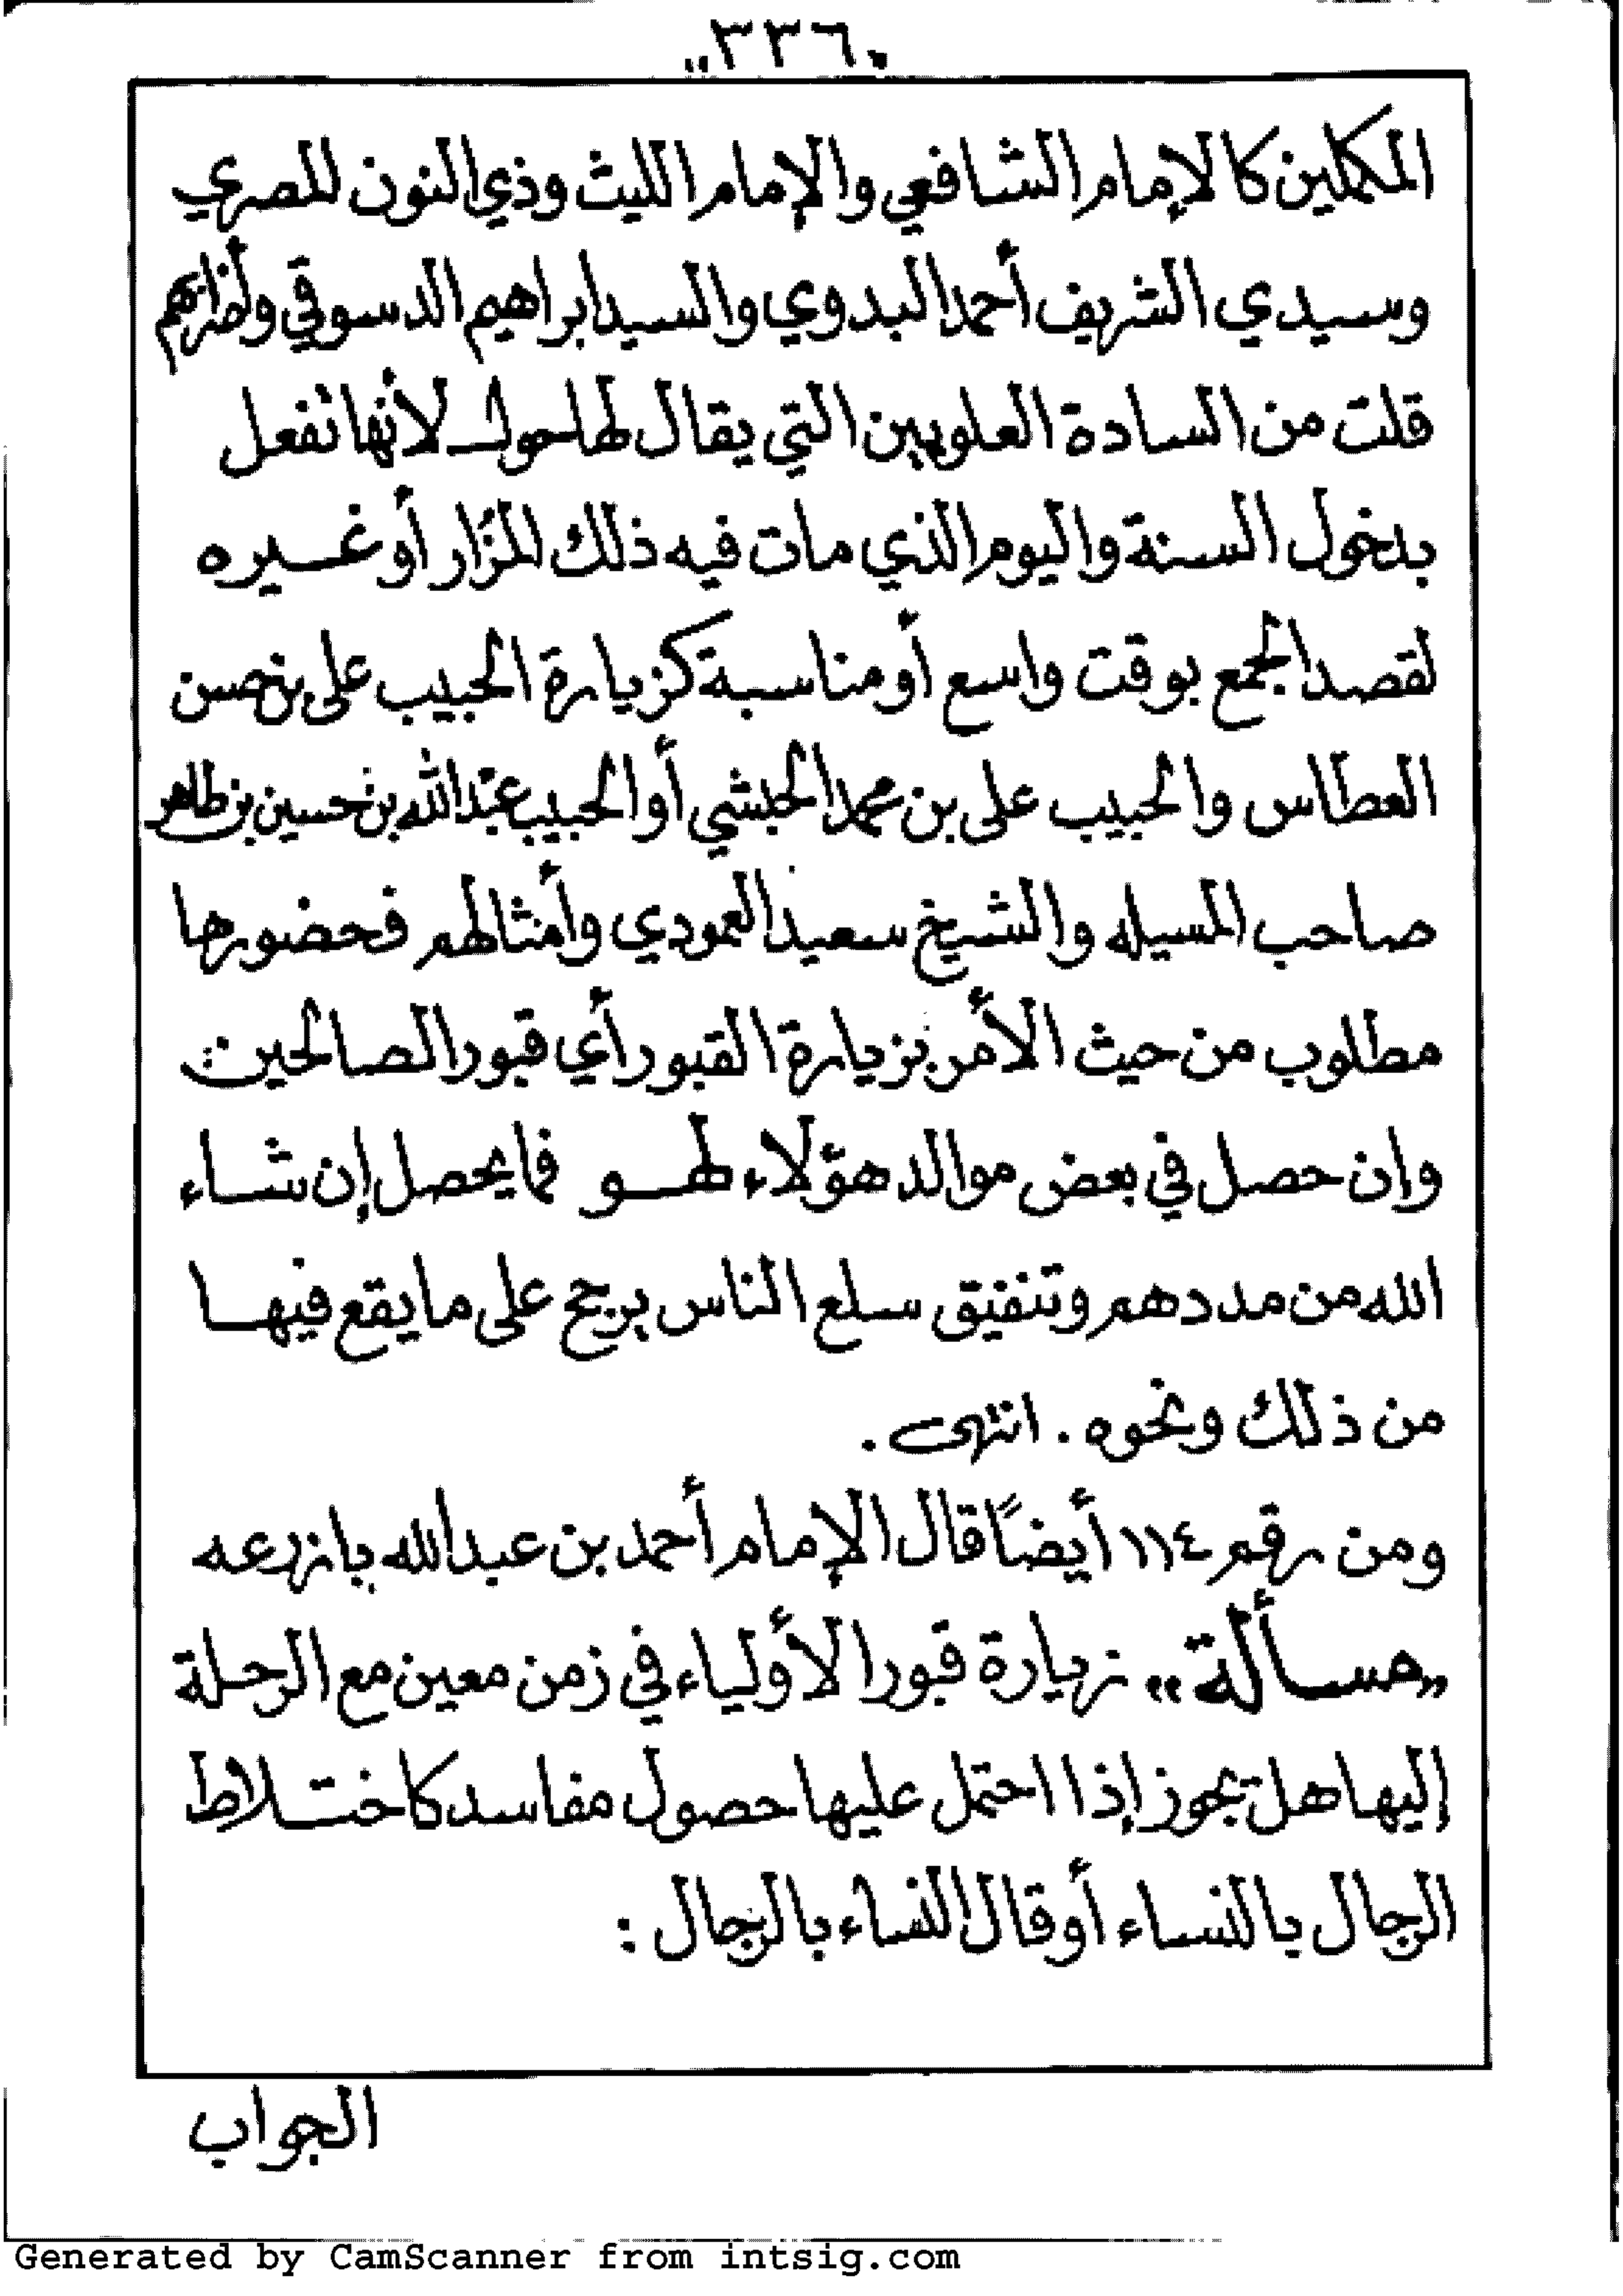 ٣٣٦
المكملين كالإمام الشافعي والإمام الليث وذي النون المصري
وسيدي الشريف أحمد البدوي والسيد ابراهيم الدسوقي وأضرابهم
قلت من السادة العلويين التي يقال لها حول لأنها تفعل
بدخول السنة واليوم الذي مات فيه ذلك المزار أو غيره
لقصد الجمع بوقت واسع أو مناسبة كزيارة الحبيب علي بن حسن
العطاس والحبيب علي بن محمد الحبشي أو الحبيب عبدالله بن حسين بن طاهر
صاحب المسيله والشيخ سعيد العمودي وأمثالهم فحضورها
مطلوب من حيث الأمر بزيارة القبور أي قبور الصالحين
وإن حصل في بعض موالد هؤلاء لهو فما يحصل إن شاء
الله من مددهم وتنفيق سلع الناس يرجح على ما يقع فيها
من ذلك ونحوه . انتهى .
ومن رقم ١١٤ أيضًا قال الإمام أحمد بن عبدالله بازرعه
„مسألة“ زيارة قبور الأولياء في زمن معين مع الرحلة
إليها هل تجوز إذا احتمل عليها حصول مفاسد كاختلاط
الرجال بالنساء أو قال النساء بالرجال :
الجواب
Generated by CamScanner from intsig.com